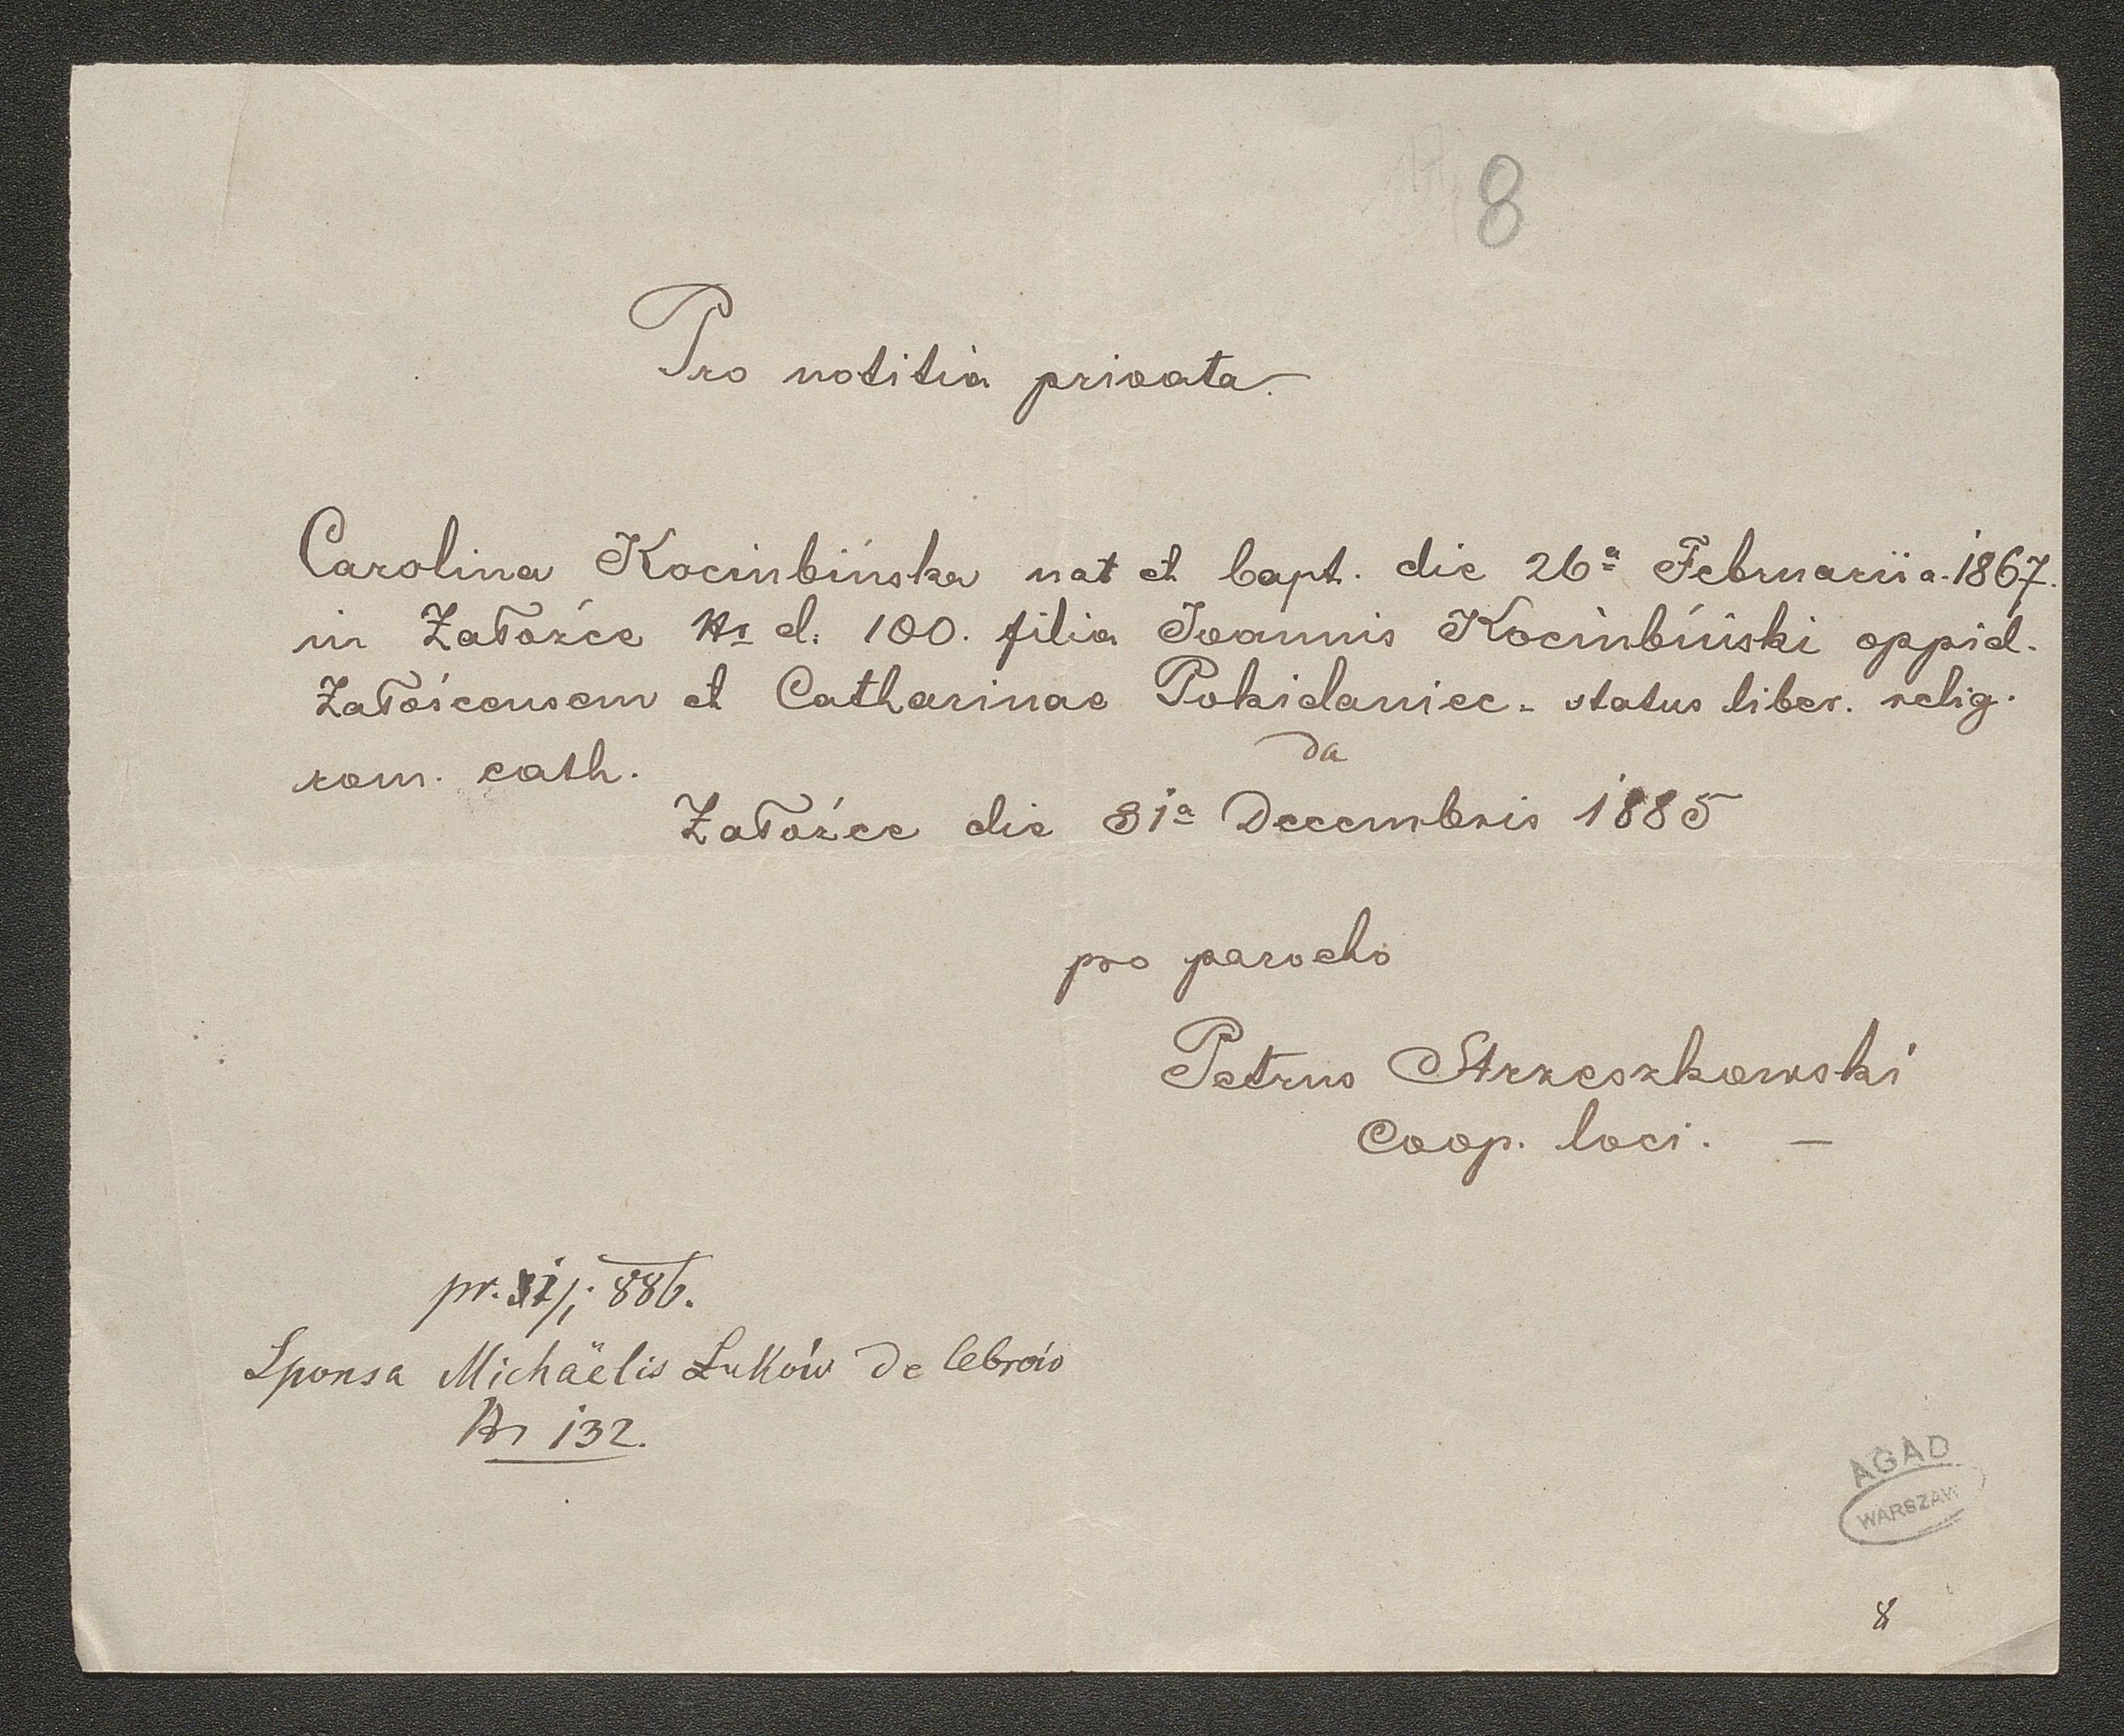 8
Pro notitia privata.
Carolina Kocinbińska nat et bapt. die 26ª Februarii a. 1867.
in Załoźce Nr d. 100. filia Joannis Kocinbiński oppid.
Załoścensem et Catharinae Pokidaniec - status liber. relig.
rom. cath.
da
Załoźce die 31ª Decembris 1885
pro parocho
Petrus Strzeszkowski
Coop. loci. —
pr. /1 886.
Sponsa Michäelis de
Nr 132.
AGAD
WARSZAW
8